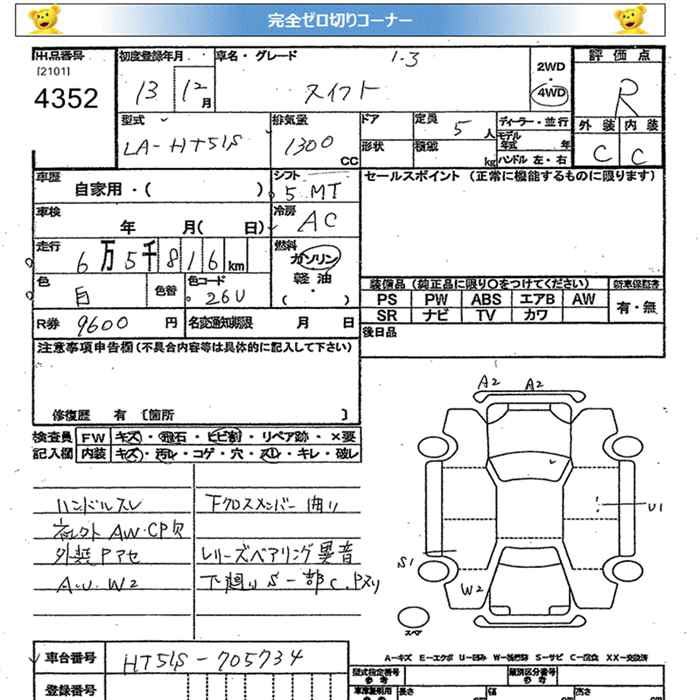 完全ゼロ切りコーナー
出品番号
[2101]
4352
初度登録年月
13 12月
車名・グレード
1.3
スイフト
2WD
・
4WD
評価点
R
外装 内装
C C
型式
LA-HT51S
排気量
1300
CC
ドア
形状
定員
5 人
積載
kg
ディーラー・並行
モデル年式 年
ハンドル 左・右
車歴
自家用・( )
シフト
5 MT
セールスポイント (正常に機能するものに限ります)
車検
年 月( 日)
冷房
AC
走行
6万5千816km
燃料
ガソリン
軽油
( ・ )
色
白
色替
色コード
26U
装備品 (純正品に限り○をつけてください)
PS PW ABS エアB AW
SR ナビ TV カワ
新車保証書
有・無
R券 9600 円
名変通知期限 月 日
後日品
注意事項申告欄(不具合内容等は具体的に記入して下さい)
修復歴 有 [箇所 ]
検査員
記入欄
FW キズ・飛石・ヒビ割・リペア跡・×要
内装 キズ・汚レ・コゲ・穴・スレ・キレ・破レ
ハンドルスレ
下クロスメンバー曲り
社外AW・CP欠
外装Pアセ
レリーズベアリング異音
A・U・W2
下廻りS一部C、Pヌリ
A2 A2
U1
S1
W2
スペア
A－キズ E－エクボ U－凹み W－補修跡 S－サビ C－腐食 XX－交換済
車台番号
HT51S-705734
登録番号
型式指定番号
参考
類別区分番号
参考
長さ
幅
高さ